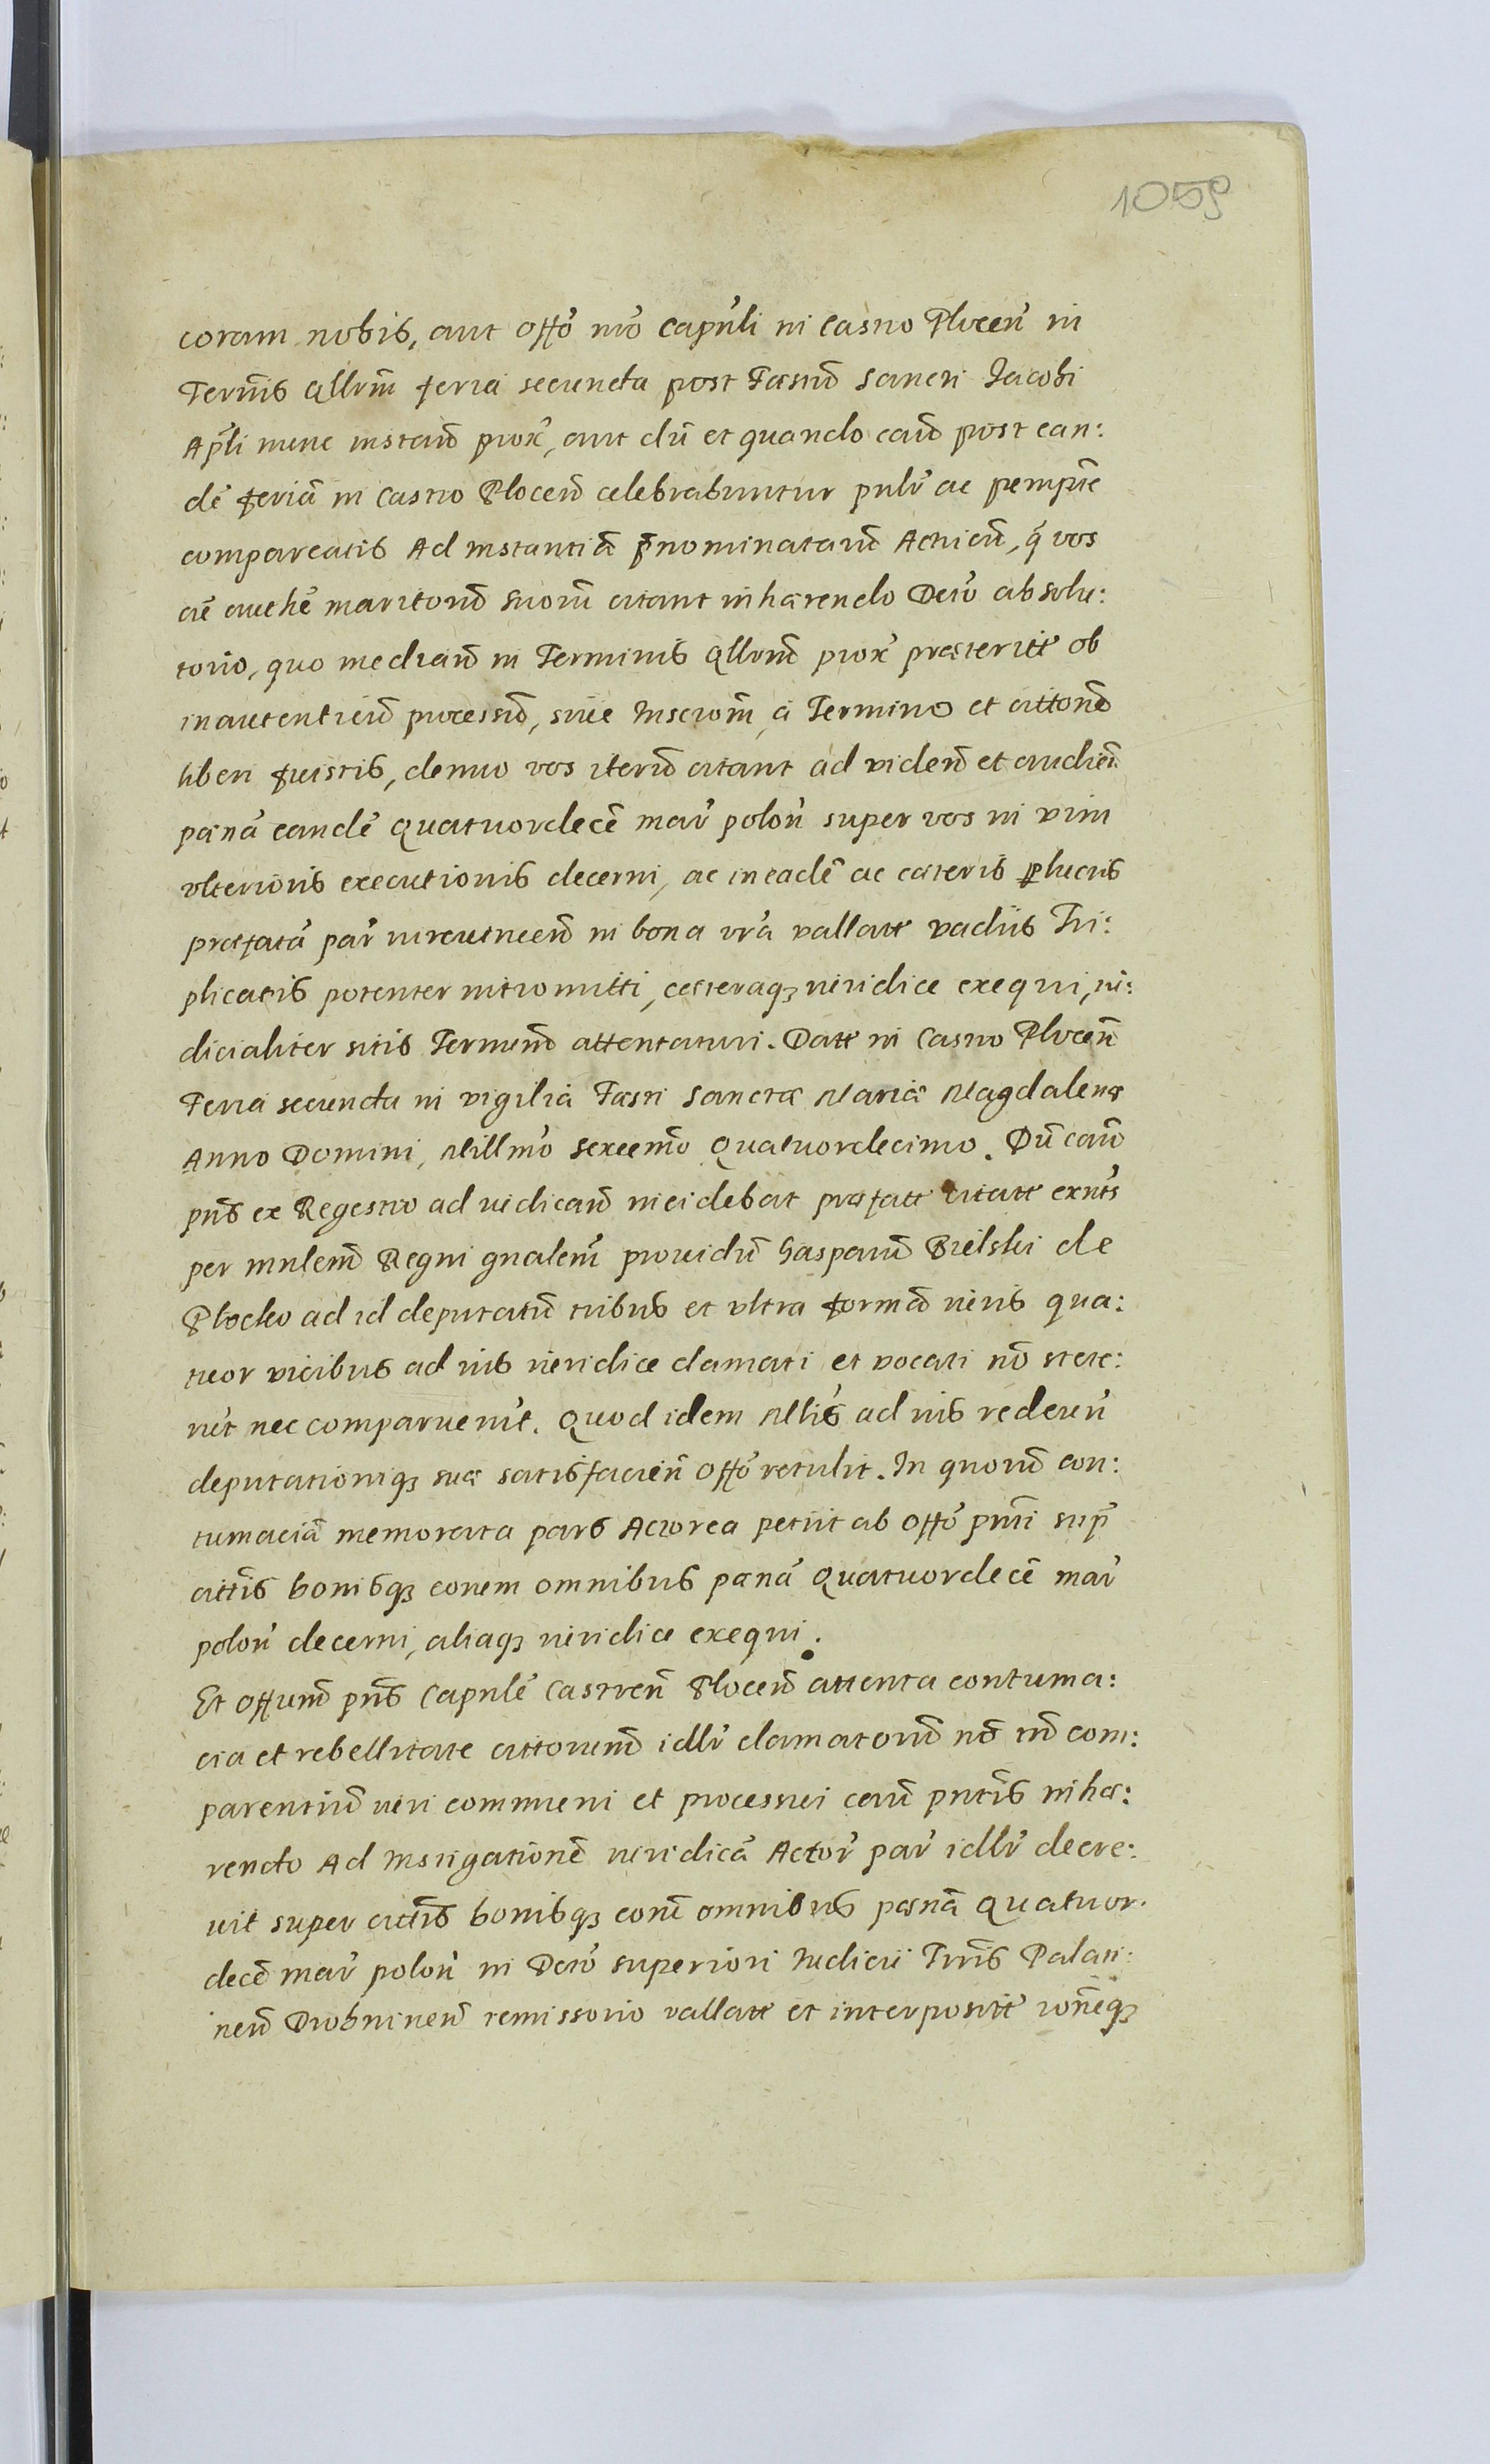 1059
coram nobis, aut Offõ nrõ Capñli in Castro Plocen̄ in
Term̃is qllrm̃ feria secunda post Fæstũ Sancti Jacobi
Apl̃i nunc instañ prox̃, aut dũ et quando eaũ post ean:
dẽ feriã in Castro Ploceñ celebrabuntur pnlr̃ ac pempñe
compareatis Ad instantiã p̃nominatarũ Actricũ, q̃ vos
cũ authẽ maritorũ suorũ citant inhærendo Decrõ absolu:
torio, quo mediañ in Terminis qllrũm prox̃ præteritt̃ ob
inautenticũ processũ, siue Inscrom̃, à Termino et cittonẽ
liberi fuistis, denuo vos iterũ citant ad videñ et audieñ
pænã eandẽ Quatuordecẽ mar̃ polon̄ super vos in vim
vlterioris executionis decerni, ac in eadẽ ac cæteris ꝑlucris
præfatã par̃ in bona vrã vallatt vadiis Tri:
plicatis potenter intromitti, cæteraqꝫ iuridice exequi, iu:
dicialiter sitis Terminũ attentaturi. Datt in Castro Ploceñ
Feria secunda in vigilia Fæsti Sanctæ Mariæ Magdalenæ
Anno Domini, Millmõ Sexcemõ Quatuordecimo. Dũ cauõ
pñs ex Regestro ad iudicañ incidebat præfatt citatt exñts
per mnlem̃ Regni gnalem̃ prouidũ Gasparũ Bielski de
Plocko ad id deputatũ tribus et vltra formã iuris qua:
tuor vicibus ad ius iuridice clamati et vocati nõ stete:
rũt nec comparuerũt. Quod idem Mllis̃ ad ius redeun̄
deputationiqꝫ suæ satisfacieñ Offõ retulit. In quorũ con:
tumaciã memorata pars Actorea petiit ab Offõ pñti sup̃
cittis̃ bonisqꝫ eorum omnibus pænã Quatuordecẽ mar̃
polon̄ decerni, aliaqꝫ iuridice exequi.
Et Offium̃ pñs Capnlẽ Castreñ Ploceñ attenta contuma:
cia et rebellitate cittorum̃ idlr̃ clamatorũ nõ tñ com:
parentiũ iuri communi et processui cauũ pntis̃ inhæ:
rendo Ad Instigationẽ iuridicã Actor̃ par̃ idlr̃ decre:
uit super cittis̃ bonisqꝫ eorũ omnibus pænã Quatuor:
decẽ mar̃ polon̄ in Decrõ superiori Iudicii Trris̃ Palati:
neñ Drobnineñ remissorio vallatt et interpositt ronẽqꝫ